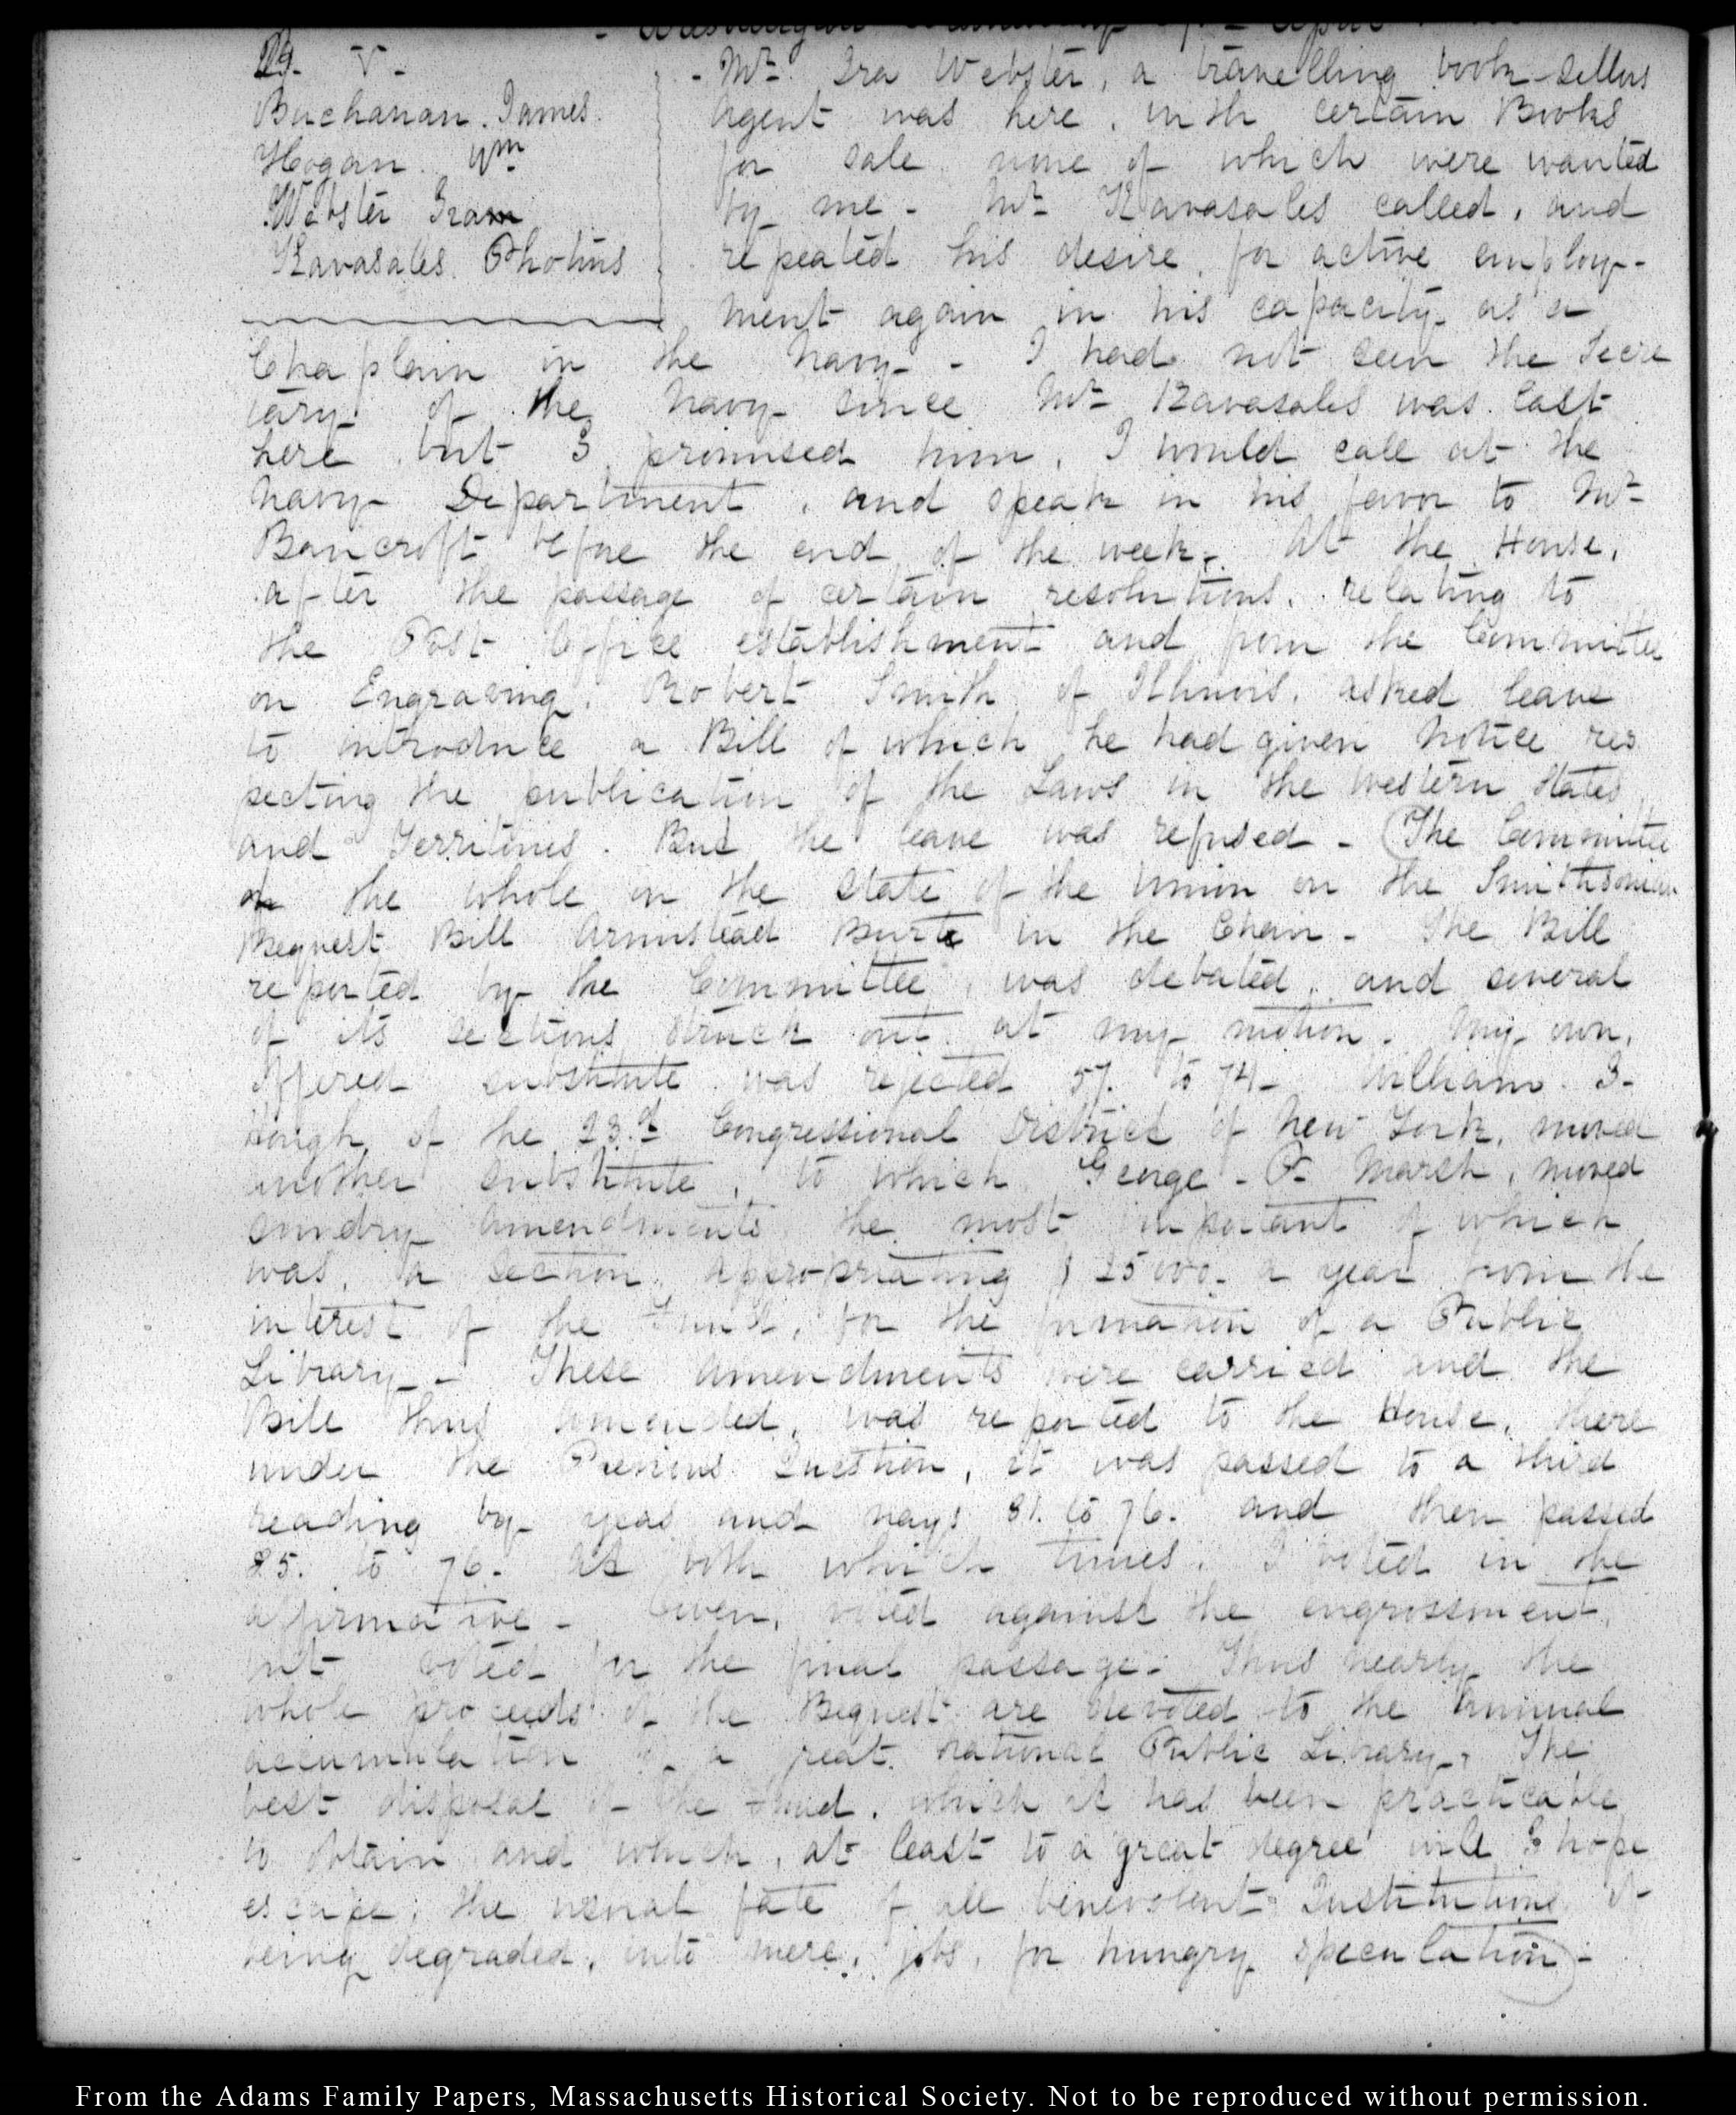 29. V.
Buchanan. James.
Hogan. Wm
Webster Iram
Kavasales. Photius
- Mr. Ira Webster, a travelling book-sellers
agent was here, with certain Books
for sale none of which were wanted
by me - Mr Kavasales called, and
repeated his desire, for active employ-
ment again in his capacity as a
Chaplain in the Navy - I had not seen the Secre
tary of the Navy since Mr Kavasales was last
here but I promised him, I would call at the
Navy Department, and speak in his favor to Mr
Bancroft before the end of the week. At the House,
after the passage of certain resolutions, relating to
the Post Office establishment and from the Committee
on Engraving. Robert Smith of Illinois, asked leave
to introduce a Bill of which he had given notice res
pecting the publication of the Laws in the Western States
and Territories. But the leave was refused - (The Committee
of the whole on the state of the Union on the Smithsonian
Bequest Bill Armistead Burt in the Chair - The Bill
reported by the Committee, was debated, and several
of its sections struck out at my motion. My own,
offered substitute was rejected 57. to 74 - William. J.
Hough of the 23.d Congressional District of New York, moved
another substitute, to which George - P. Marsh, moved
sundry amendments the most important of which
was, a section appropriating $25000. a year from the
interest of the Fund, for the formation of a Public
Library - These amendments were carried and the
Bill thus amended, was reported to the House, there
under the Previous Question, it was passed to a third
reading by yeas and nays 81. to 76. and then passed
85. to 76. At both which times, I voted in the
affirmative - Owen, voted against the engrossment,
but voted for the final passage. Thus nearly the
whole proceeds of the Bequest are devoted to the Annual
accumulation of a great national Public Library. The
best disposal of the Fund, which it has been practicable
to obtain and which, at least to a great degree will I hope
escape, the usual fate of all benevolent Institutions of
being degraded, into mere, jobs, for hungry speculation) -
From the Adams Family Papers, Massachusetts Historical Society. Not to be reproduced without permission.